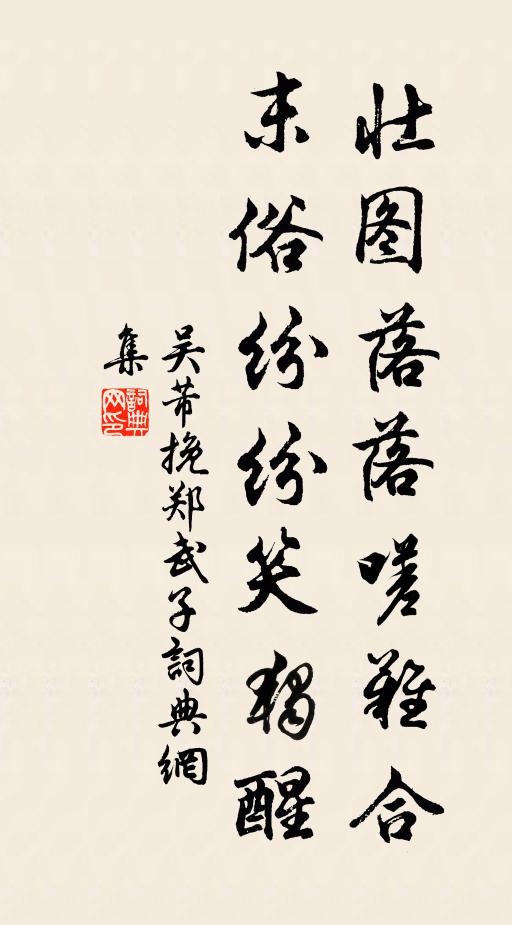 壮图落落嗟难合
末俗纷纷笑独醒
吴芾挽郑武子詞典網
集
詞典网印